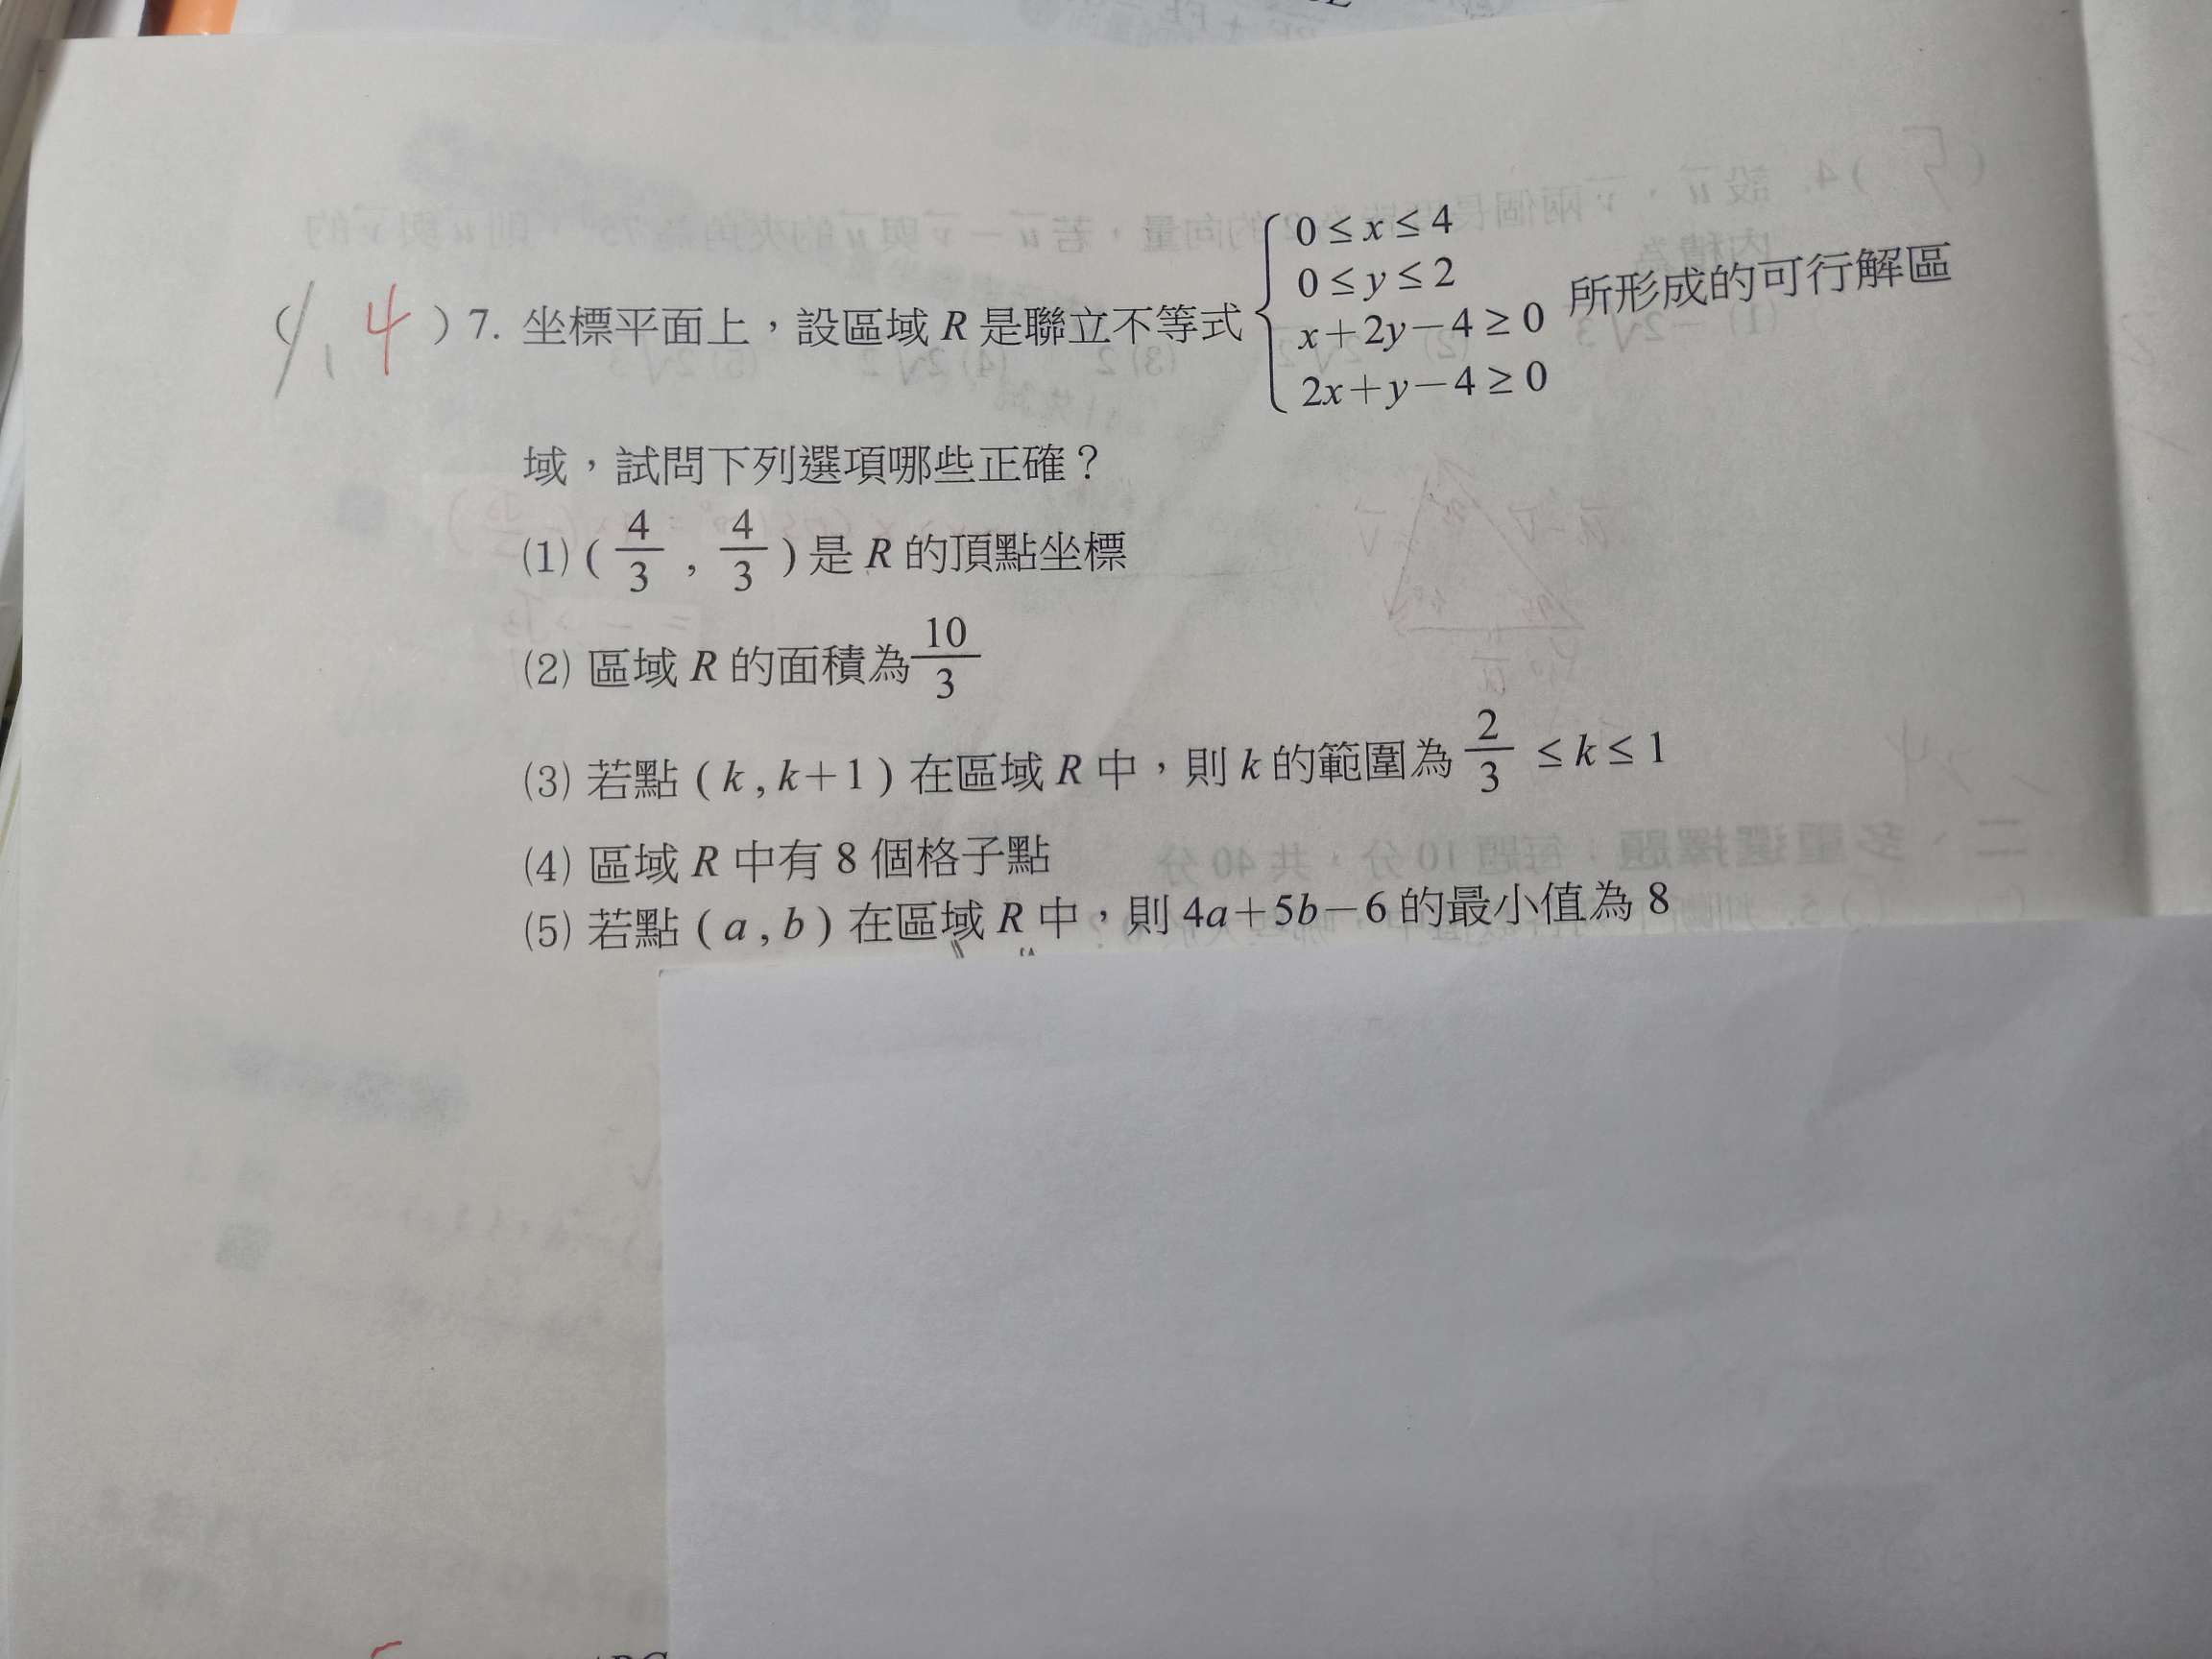 (1,4)7. 坐標平面上，設區域 R 是聯立不等式 { 0≤x≤4 0≤y≤2 x+2y−4≥0 2x+y−4≥0 所形成的可行解區
域，試問下列選項哪些正確？
(1) ( 4/3 , 4/3 ) 是 R 的頂點坐標
(2) 區域 R 的面積為 10/3
(3) 若點 ( k , k+1 ) 在區域 R 中，則 k 的範圍為 2/3 ≤ k ≤ 1
(4) 區域 R 中有 8 個格子點
(5) 若點 ( a , b ) 在區域 R 中，則 4a+5b−6 的最小值為 8